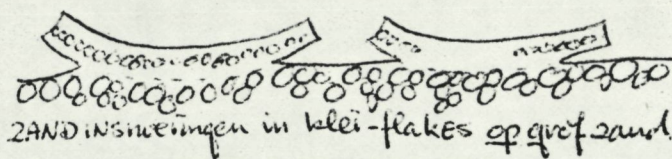 ZAND insmeringen in klei-flakes op grof zand